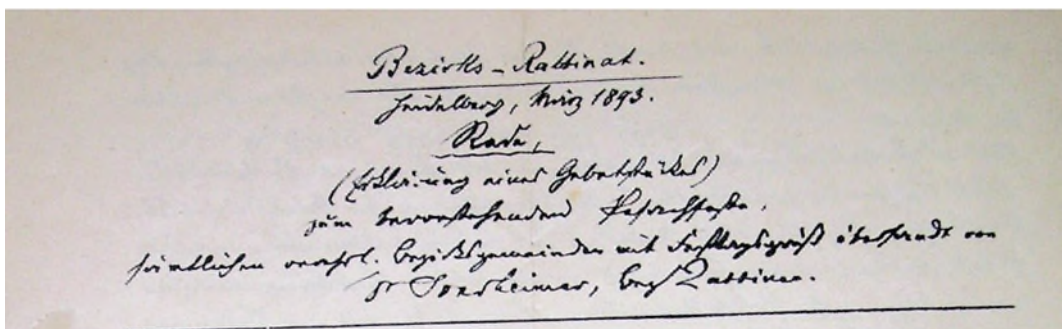 Bezirks-Rabbinat.
Heidelberg, März 1893.
Rede,
(Erklärung eines Gebetstückes)
zum bevorstehenden Pesachfeste,
sämtlichen verehrl. Bezirksgemeinden mit Festtagsgruß übersandt von
Dr Sondheimer, Bez Rabbiner.